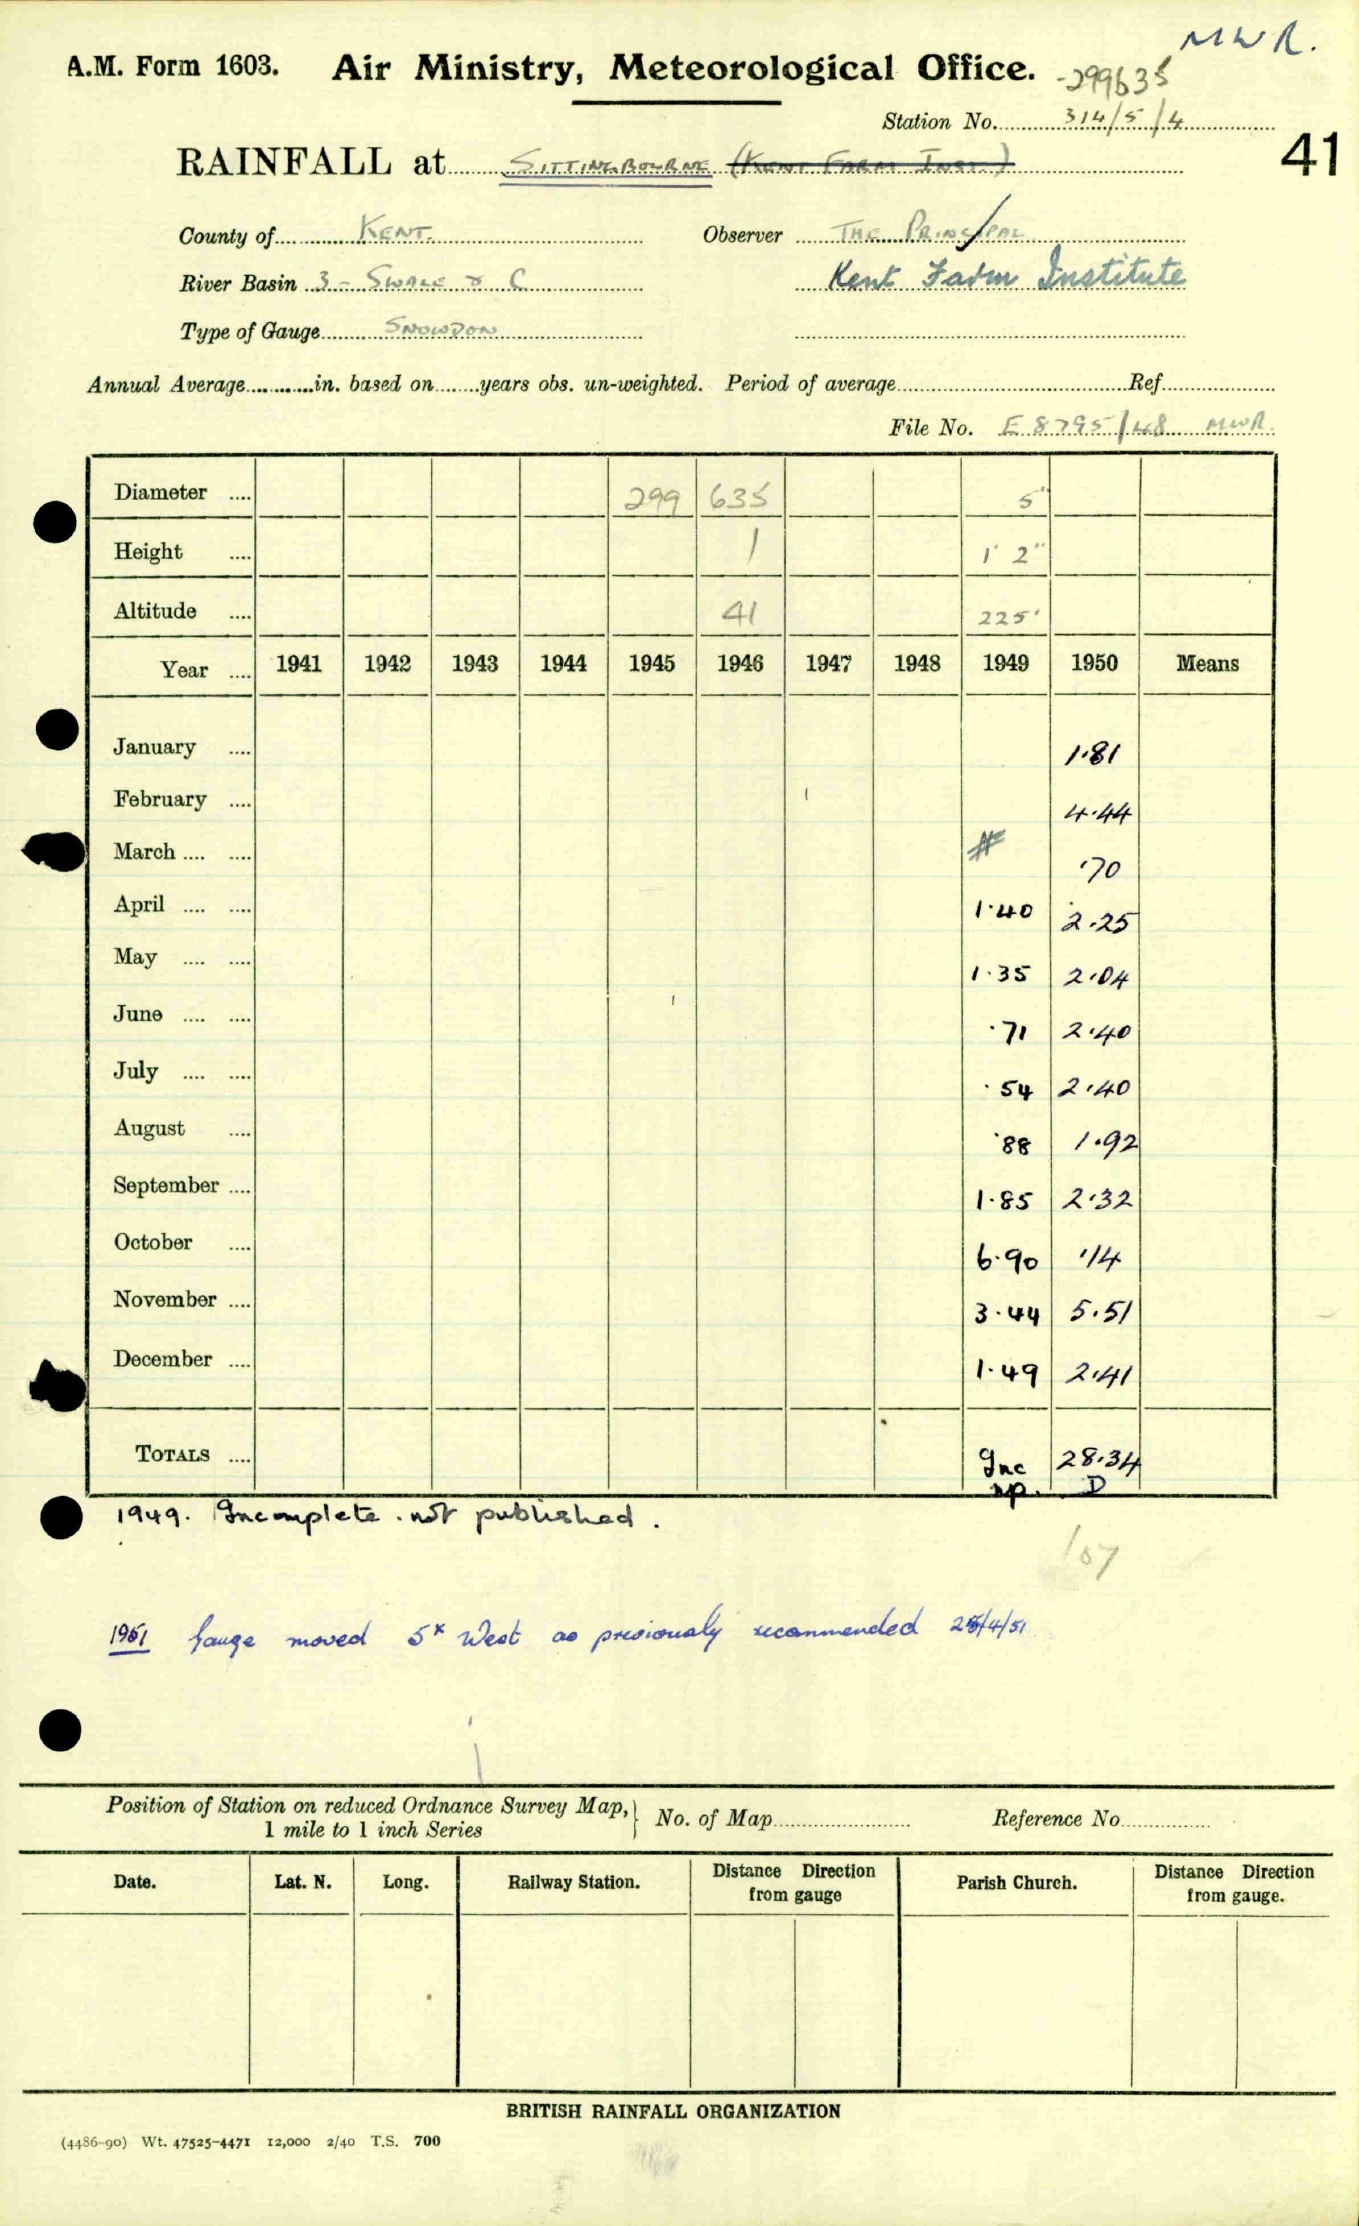 MWR.
A.M. Form 1603. Air Ministry, Meteorological Office.
299635
Station No. 314/5/4
41
RAINFALL at SITTINGBOURNE (KENT FARM INST.)
County of KENT. Observer THE PRINCIPAL
River Basin 3 - SWALE & C Kent Farm Institute
Type of Gauge SNOWDON
Annual Average............in. based on.......years obs. un-weighted. Period of average.................... Ref...................
File No. E 8795/48 MWR.
Diameter .... 299 635 5"
Height .... 1 1' 2"
Altitude .... 41 225'
Year .... 1941 1942 1943 1944 1945 1946 1947 1948 1949 1950 Means
January .... 1.81
February .... 4.44
March .... .... .70
April .... .... 1.40 2.25
May .... .... 1.35 2.04
June .... .... .71 2.40
July .... .... .54 2.40
August .... .88 1.92
September .... 1.85 2.32
October .... 6.90 .14
November .... 3.44 5.51
December .... 1.49 2.41
TOTALS .... Inc 28.34
np. D
1949. Incomplete. not published.
107
1951 Gauge moved 5x West as previously recommended /4/51
Position of Station on reduced Ordnance Survey Map, 1 mile to 1 inch Series } No. of Map........................ Reference No................
Date. Lat. N. Long. Railway Station. Distance from gauge Direction Parish Church. Distance from gauge. Direction
BRITISH RAINFALL ORGANIZATION
(4486-90) Wt. 47525-4471 12,000 2/40 T.S. 700